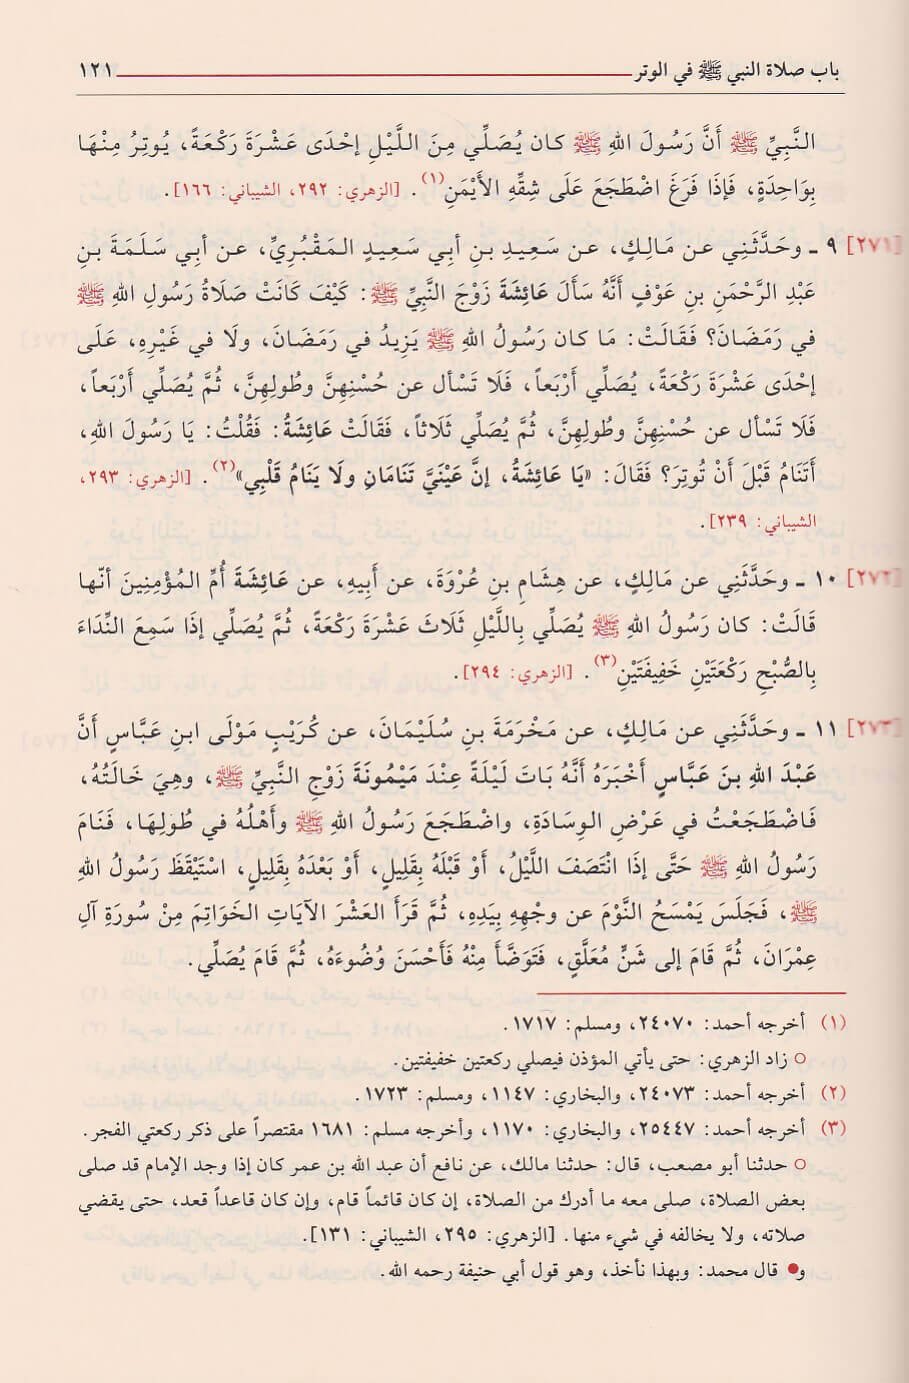 باب صلاة النبي ﷺ في الوتر ١٢١
النَّبِيِّ ﷺ أَنَّ رَسُولَ اللهِ ﷺ كان يُصَلِّي مِنَ اللَّيْلِ إحْدَى عَشْرَةَ رَكْعَةً، يُوتِرُ مِنْهَا
بِوَاحِدَةٍ، فَإِذَا فَرَغَ اضْطَجَعَ عَلَى شِقِّهِ الأَيْمَنِ(١). [الزهري: ٢٩٢، الشيباني: ١٦٦].
[٢٧١] ٩ ـ وحَدَّثَنِي عن مَالِكٍ، عن سَعِيدِ بنِ أبي سَعِيدٍ المَقْبُرِيِّ، عن أبي سَلَمَةَ بنِ
عَبْدِ الرَّحْمَنِ بنِ عَوْفٍ أَنَّهُ سَأَلَ عَائِشَةَ زَوْجَ النَّبِيِّ ﷺ: كَيْفَ كَانَتْ صَلَاةُ رَسُولِ اللهِ ﷺ
في رَمَضَانَ؟ فَقَالَتْ: مَا كان رَسُولُ اللهِ ﷺ يَزِيدُ في رَمَضَانَ، ولَا في غَيْرِهِ، عَلَى
إحْدَى عَشْرَةَ رَكْعَةً، يُصَلِّي أَرْبَعاً، فَلَا تَسْأل عن حُسْنِهِنَّ وطُولِهِنَّ، ثُمَّ يُصَلِّي أَرْبَعاً،
فَلَا تَسْأل عن حُسْنِهِنَّ وطُولِهِنَّ، ثُمَّ يُصَلِّي ثَلَاثاً، فَقَالَتْ عَائِشَةُ: فَقُلْتُ: يَا رَسُولَ اللهِ،
أَتَنَامُ قَبْلَ أَنْ تُوتِرَ؟ فَقَالَ: «يَا عَائِشَةُ، إنَّ عَيْنَيَّ تَنَامَانِ ولَا يَنَامُ قَلْبِي»(٢). [الزهري: ٢٩٣،
الشيباني: ٢٣٩].
[٢٧٢] ١٠ ـ وحَدَّثَنِي عن مَالِكٍ، عن هِشَامِ بنِ عُرْوَةَ، عن أَبِيهِ، عن عَائِشَةَ أُمِّ المُؤْمِنِينَ أنّها
قَالَتْ: كان رَسُولُ اللهِ ﷺ يُصَلِّي بِاللَّيْلِ ثَلَاثَ عَشْرَةَ رَكْعَةً، ثُمَّ يُصَلِّي إذَا سَمِعَ النِّدَاءَ
بِالصُّبْحِ رَكْعَتَيْنِ خَفِيفَتَيْنِ(٣). [الزهري: ٢٩٤].
[٢٧٣] ١١ ـ وحَدَّثَنِي عن مَالِكٍ، عن مَخْرَمَةَ بنِ سُلَيْمَانَ، عن كُرَيْبٍ مَوْلَى ابنِ عَبَّاسٍ أَنَّ
عَبْدَ اللهِ بنَ عَبَّاسٍ أَخْبَرَهُ أَنَّهُ بَاتَ لَيْلَةً عِنْدَ مَيْمُونَةَ زَوْجِ النَّبِيِّ ﷺ، وهِيَ خَالَتُهُ،
فَاضْطَجَعْتُ في عَرْضِ الوِسَادَةِ، واضْطَجَعَ رَسُولُ اللهِ ﷺ وأَهْلُهُ في طُولِهَا، فَنَامَ
رَسُولُ اللهِ ﷺ حَتَّى إذَا انْتَصَفَ اللَّيْلُ، أَوْ قَبْلَهُ بِقَلِيلٍ، أَوْ بَعْدَهُ بِقَلِيلٍ، اسْتَيْقَظَ رَسُولُ اللهِ
ﷺ، فَجَلَسَ يَمْسَحُ النَّوْمَ عن وجْهِهِ بِيَدِهِ، ثُمَّ قَرَأَ العَشْرَ الآيَاتِ الخَوَاتِمَ مِنْ سُورَةِ آلِ
عِمْرَانَ، ثُمَّ قَامَ إلى شَنٍّ مُعَلَّقٍ، فَتَوَضَّأَ مِنْهُ فَأَحْسَنَ وُضُوءَهُ، ثُمَّ قَامَ يُصَلِّي.
(١) أخرجه أحمد: ٢٤٠٧٠، ومسلم: ١٧١٧.
○ زاد الزهري: حتى يأتي المؤذن فيصلي ركعتين خفيفتين.
(٢) أخرجه أحمد: ٢٤٠٧٣، والبخاري: ١١٤٧، ومسلم: ١٧٢٣.
(٣) أخرجه أحمد: ٢٥٤٤٧، والبخاري: ١١٧٠، وأخرجه مسلم: ١٦٨١ مقتصراً على ذكر ركعتي الفجر.
○ حدثنا أبو مصعب، قال: حدثنا مالك، عن نافع أن عبد الله بن عمر كان إذا وجد الإمام قد صلى
بعض الصلاة، صلى معه ما أدرك من الصلاة، إن كان قائماً قام، وإن كان قاعداً قعد، حتى يقضي
صلاته، ولا يخالفه في شيء منها. [الزهري: ٢٩٥، الشيباني: ١٣١].
و● قال محمد: وبهذا نأخذ، وهو قول أبي حنيفة رحمه الله.